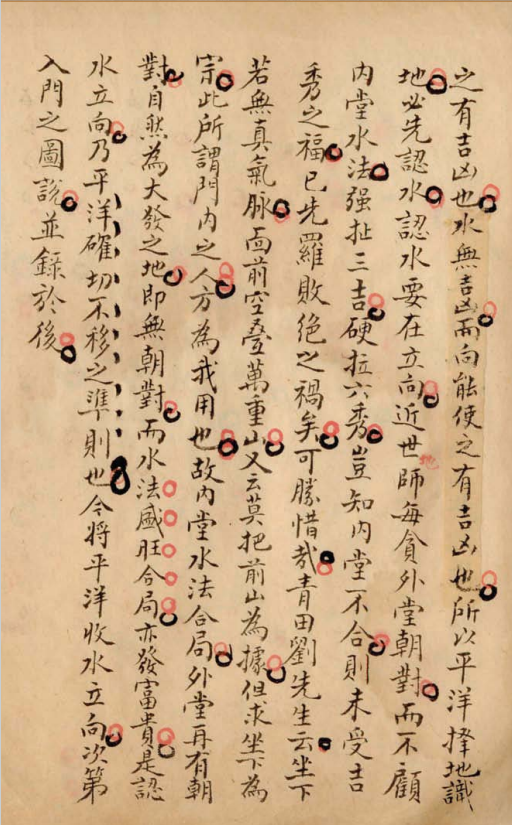 之有吉凶也水無吉凶而向能使之有吉凶也所以平洋擇地識
地必先認水認水要在立向近世地師每貪外堂朝對而不顧
內堂水法强扯三吉硬拉六秀豈知內堂一不合則未受吉
秀之福已先羅敗絕之禍矣可勝惜哉青田劉先生云坐下
若無真氣脉面前空叠萬重山又云莫把前山為據但求坐下為
宗此所謂門內之人方為我用也故內堂水法合局外堂再有朝
對自然為大發之地即無朝對而水法盛旺合局亦發富貴是認
水立向乃平洋確切不移之準則也今將平洋收水立向次第
入門之圖說並錄於後